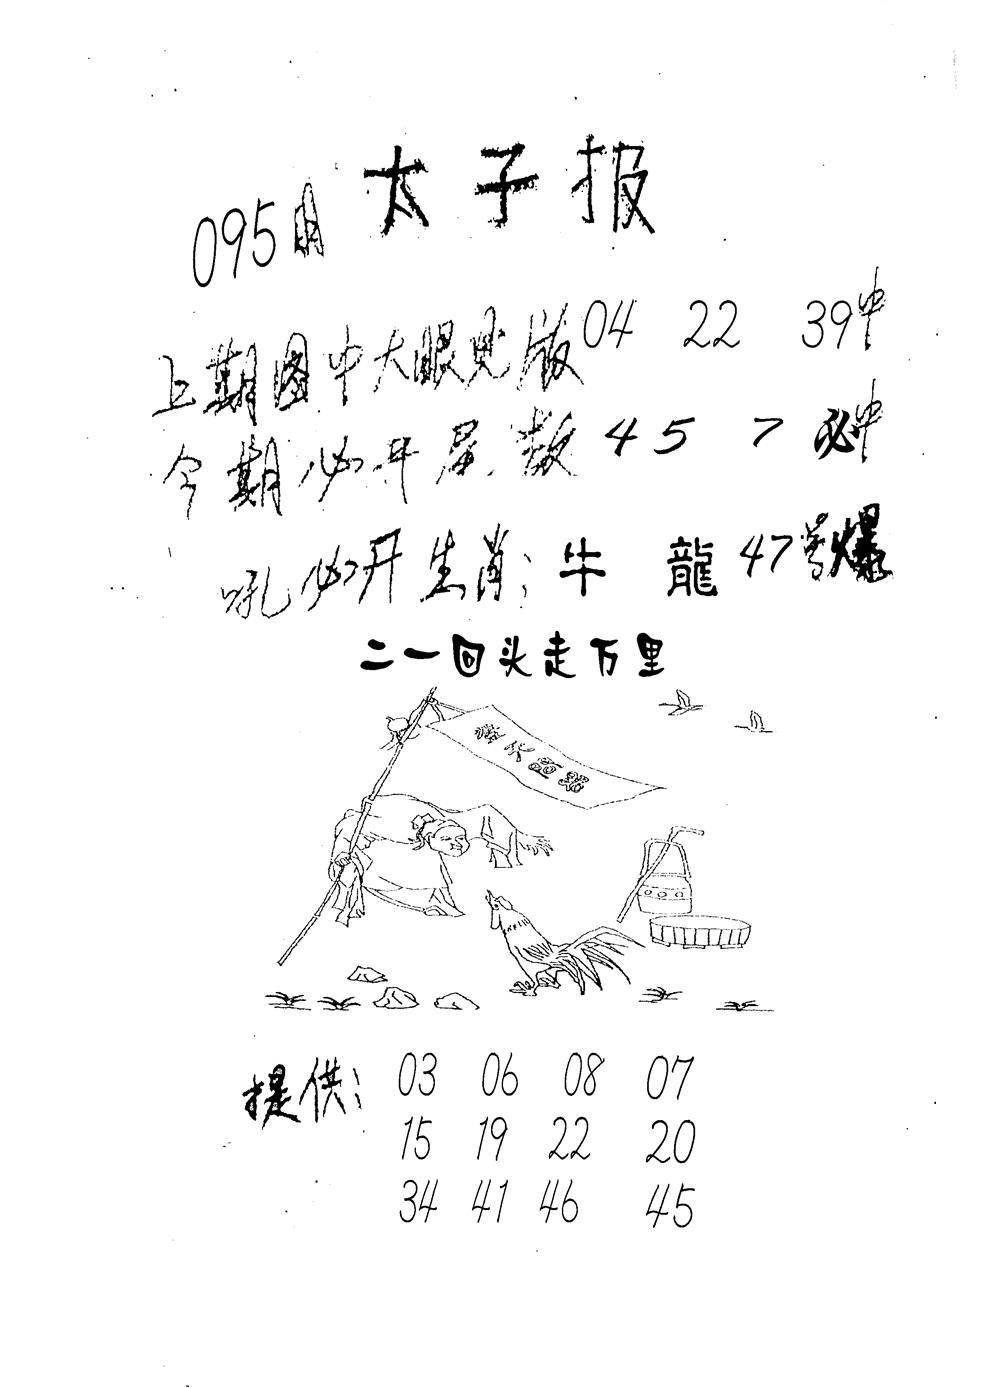 太子报
095期
上期图中大眼见版04 22 39中
今期必开尾数4 5 7必中
吼必开生肖：牛 龍 47号爆
二一回头走万里
提供：03 06 08 07
15 19 22 20
34 41 46 45